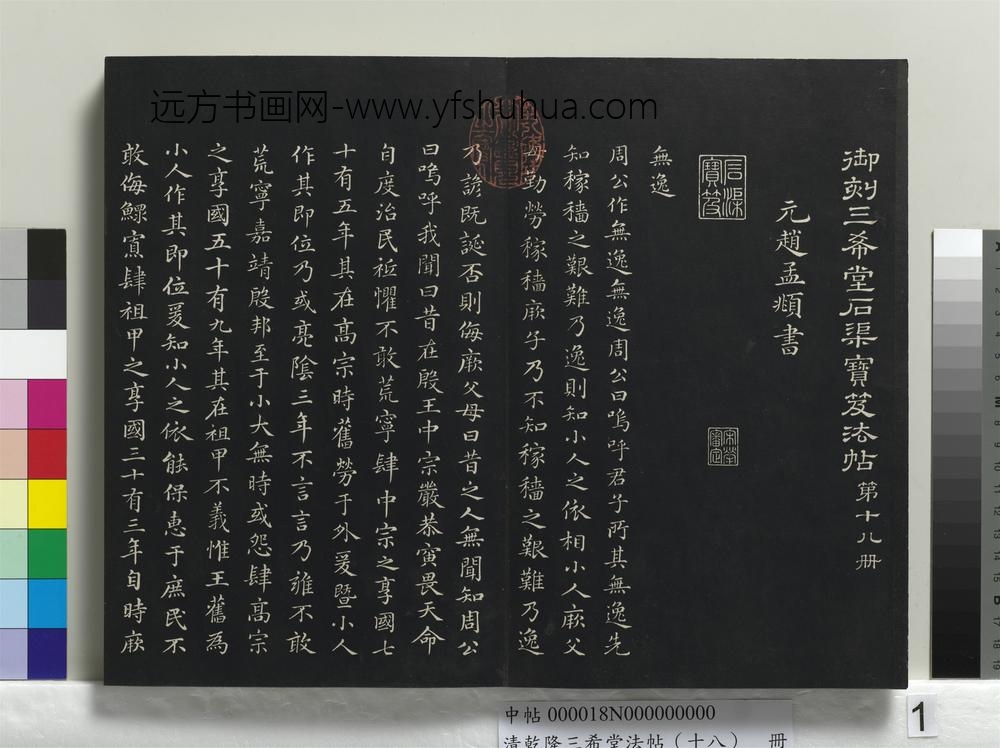 远方书画网-www.yfshuhua.com
御刻三希堂石渠寶笈法帖 第十八册
元趙孟頫書
石渠寶笈
宋犖審定
無逸
周公作無逸無逸周公曰嗚呼君子所其無逸先
知稼穡之艱難乃逸則知小人之依相小人厥父
母勤勞稼穡厥子乃不知稼穡之艱難乃逸
乃諺既誕否則侮厥父母曰昔之人無聞知周公
曰嗚呼我聞曰昔在殷王中宗嚴恭寅畏天命
自度治民祗懼不敢荒寧肆中宗之享國七
十有五年其在高宗時舊勞于外爰暨小人
作其即位乃或亮陰三年不言言乃雍不敢
荒寧嘉靖殷邦至于小大無時或怨肆高宗
之享國五十有九年其在祖甲不義惟王舊為
小人作其即位爰知小人之依能保惠于庶民不
敢侮鰥寡肆祖甲之享國三十有三年自時厥
中帖 000018N000000000
清乾隆三希堂法帖（十八） 冊
1